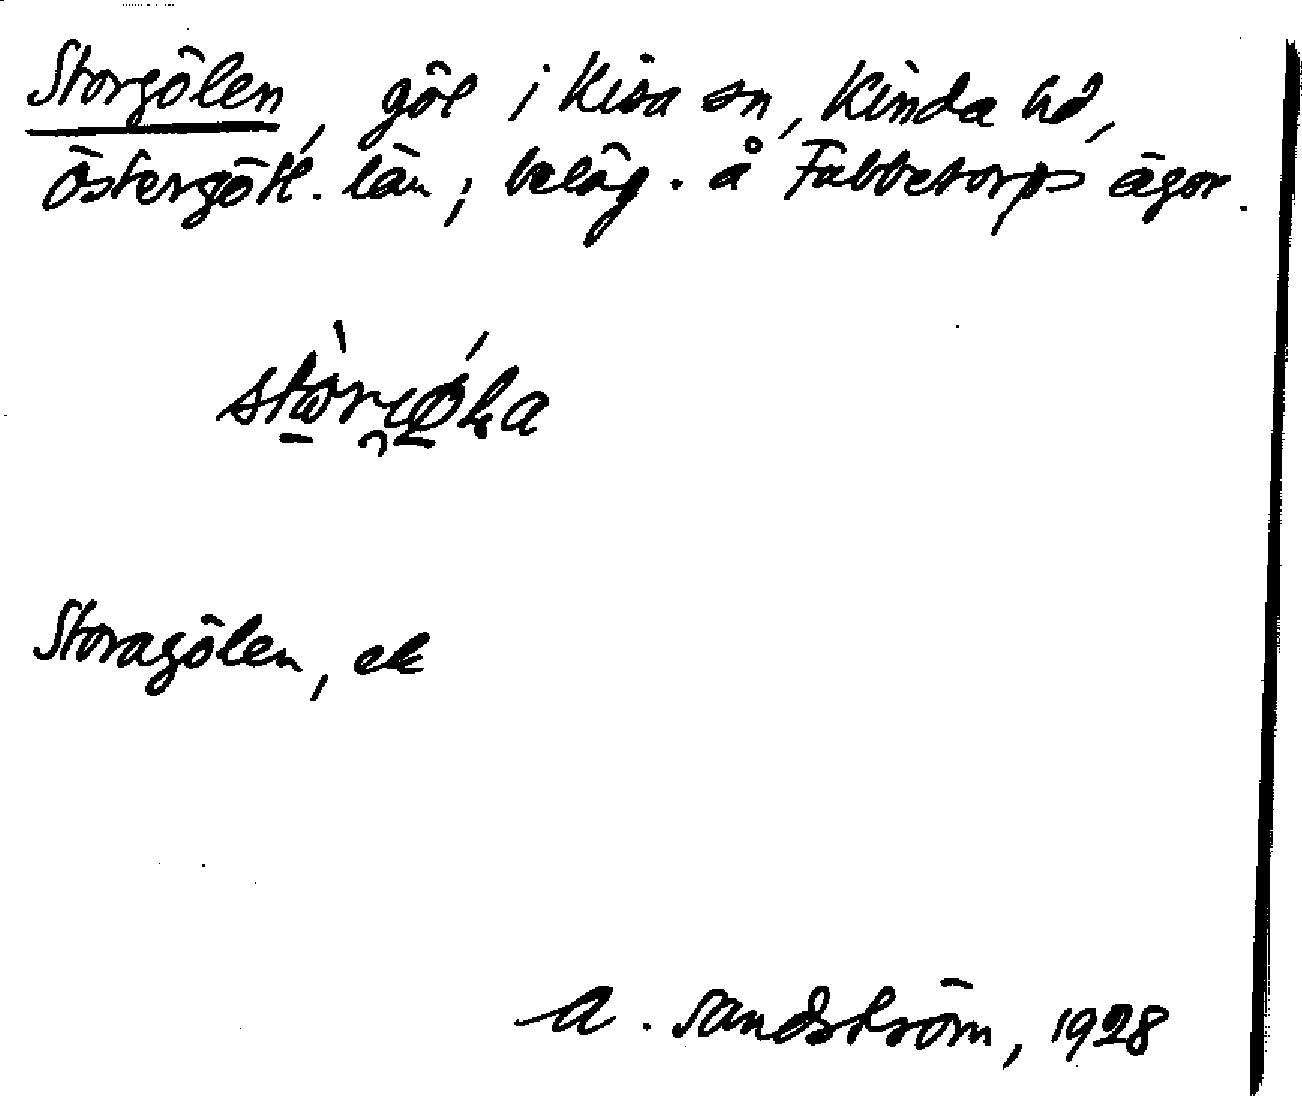 Storgölen, göl i Kisa sn, Kinda hd,
Östergötl. län; beläg. å Fabbetorps ägor.
Storagölen, ek
A. Sandström, 1928